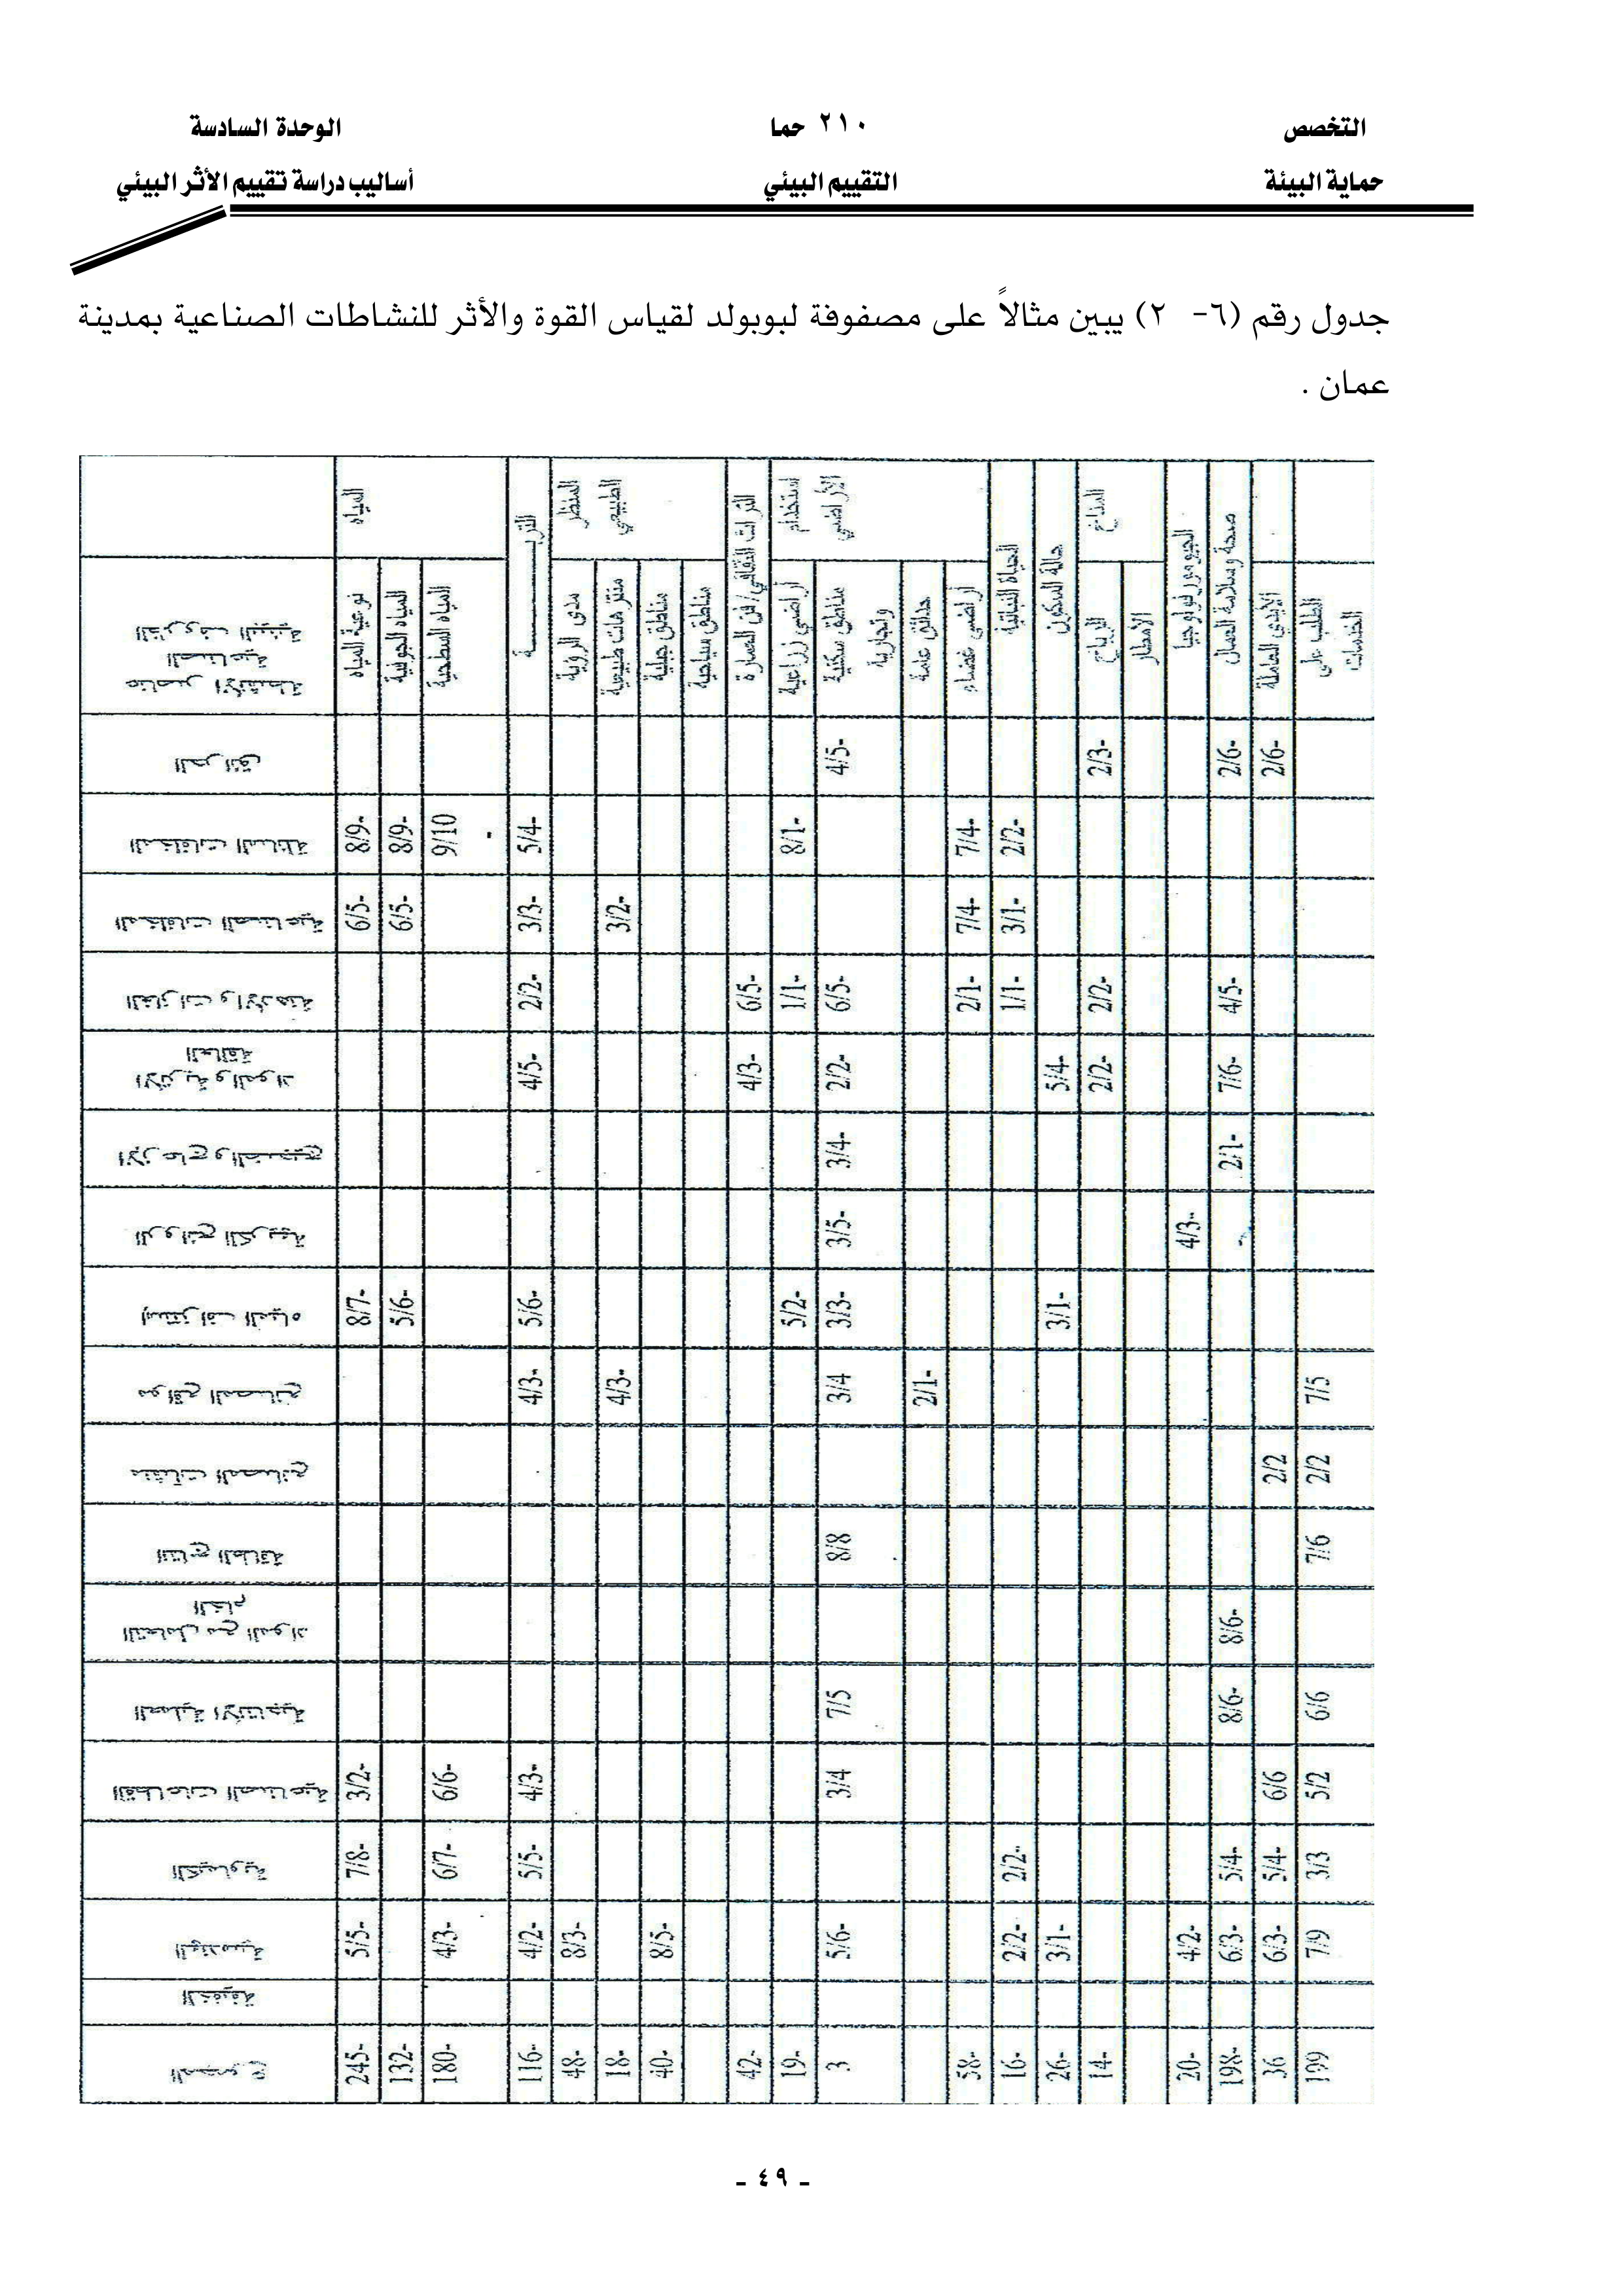 التخصص ٢١٠ حما الوحدة السادسة
حماية البيئة التقييم البيئي أساليب دراسة تقييم الأثر البيئي
جدول رقم (٦- ٢) يبين مثالاً على مصفوفة لبوبولد لقياس القوة والأثر للنشاطات الصناعية بمدينة
عمان .
المياه التربة المنظر الطبيعي التراث الثقافي/ فن العمارة استخدام الأراضي الحياة النباتية حالة السكون المناخ الجيومورفولوجيا صحة وسلامة العمال
عناصر الأنشطة الصناعية الظروف البيئية نوعية المياه المياه الجوفية المياه السطحية مدى الرؤية منتزهات طبيعية مناطق جبلية مناطق سياحية أراضي زراعية مناطق سكنية وتجارية حدائق عامة أراضي فضاء الرياح الامطار الأيدي العاملة الطلب على الخدمات
الحرائق 4/5- 2/3- 2/6- 2/6-
المخلفات السائلة 8/9- 8/9- 9/10 - 5/4- 8/1- 7/4- 2/2-
المخلفات الصناعية 6/5- 6/5- 3/3- 3/2- 7/4- 3/1-
الغازات والأدخنة 2/2- 6/5- 1/1- 6/5- 2/1- 1/1- 2/2- 4/5-
الأتربة والمواد العالقة 4/5- 4/3- 2/2- 5/4- 2/2- 7/6-
الازعاج والضجيج 3/4- 2/1-
الروائح الكريهة 3/5- 4/3-
إستنزاف المياه 8/7- 5/6- 5/6- 5/2- 3/3- 3/1-
مواقع المصانع 4/3- 4/3- 3/4 2/1- 7/5
منشآت المصانع 2/2 2/2
انتاج الطاقة 8/8 7/6
التعامل مع المواد الخام 8/6-
العملية الأنتاجية 7/5 8/6- 6/6
القطاعات الصناعية 3/2- 6/6- 4/3- 3/4 6/6 5/2
الكيماوية 7/8- 6/7- 5/5- 2/2- 5/4- 5/4- 3/3
الهندسية 5/5- 4/3- 4/2- 8/3- 8/5- 5/6- 2/2- 3/1- 4/2- 6/3- 6/3- 7/9
الخفيفة
المجموع 245- 132- 180- 116- 48- 18- 40- 42- 19- 3 58- 16- 26- 14- 20- 198- 36 199
- ٤٩ -